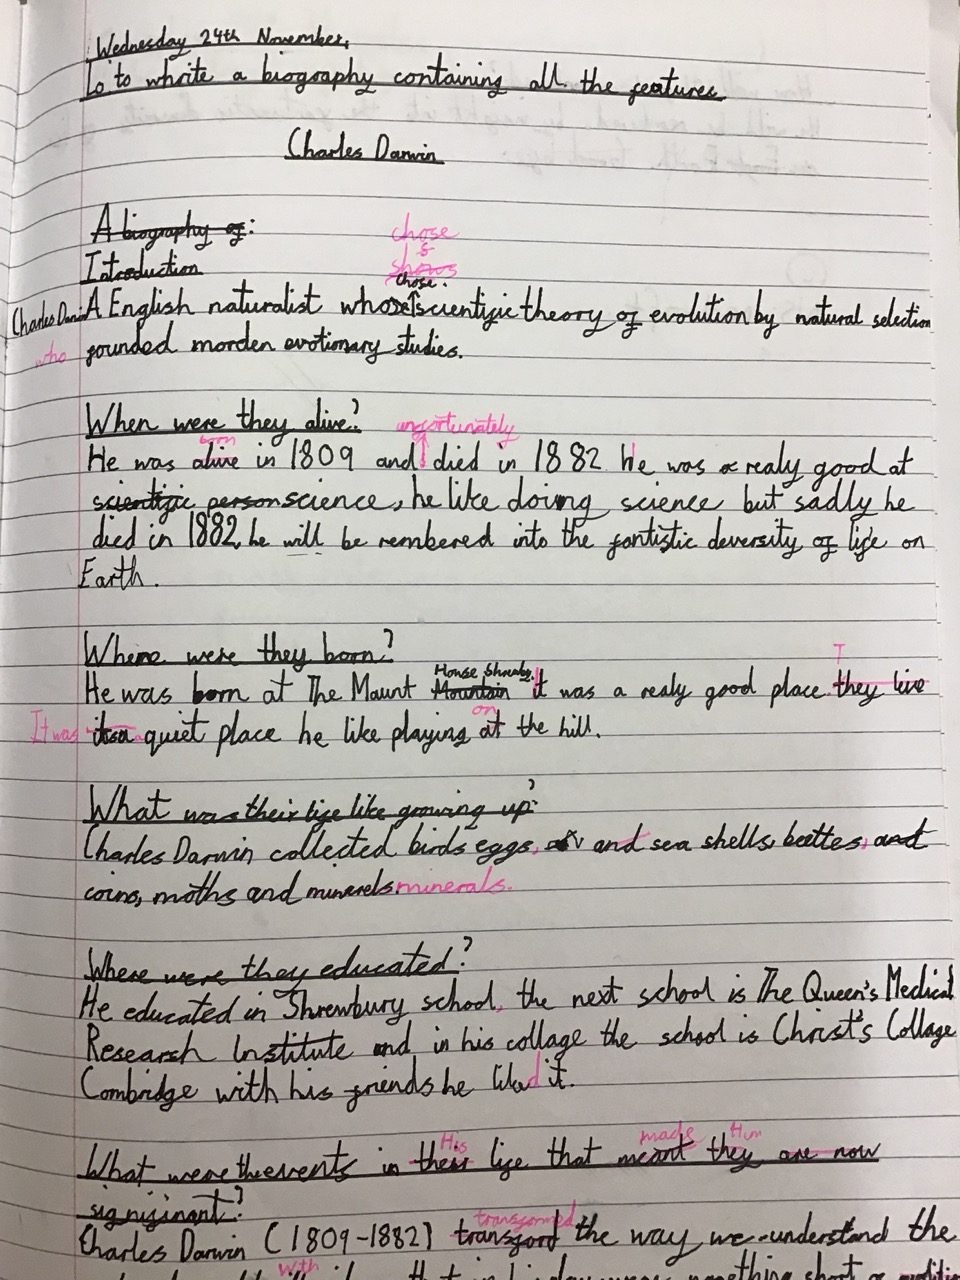 Wednesday 24th November,
Lo to whrite a biography containing all the features
Charles Darwin
A biography of:
chose
shows
Introduction
chose.
Charles Darwin A English naturalist whose scientific theory of evolution by natural selection
who founded morden evotionary studies.
When were they alive?
unfortunately
born
He was alive in 1809 and died in 1882 he was a realy good at
scientific person science, he like doing science but sadly he
died in 1882, he will be rembered into the fantistic deversity of life on
Earth.
Where were they born?
House Shrewsby. T
He was born at The Maunt Mountain it was a realy good place they live
on
It was itsa quiet place he like playing at the hill.
What was their life like growing up?
Charles Darwin collected birds eggs, and sea shells, beettes, and
coins, moths and munerels minerals.
Where were they educated?
He educated in Shrewbury school, the next school is The Queen's Medical
Research Institute and in his collage the school is Christ's Collage
Combridge with his friends he liked it.
His made Him
What were the events in their life that meant they are now
signifinant?
transformed
Charles Darwin (1809-1882) transford the way we understand the
with